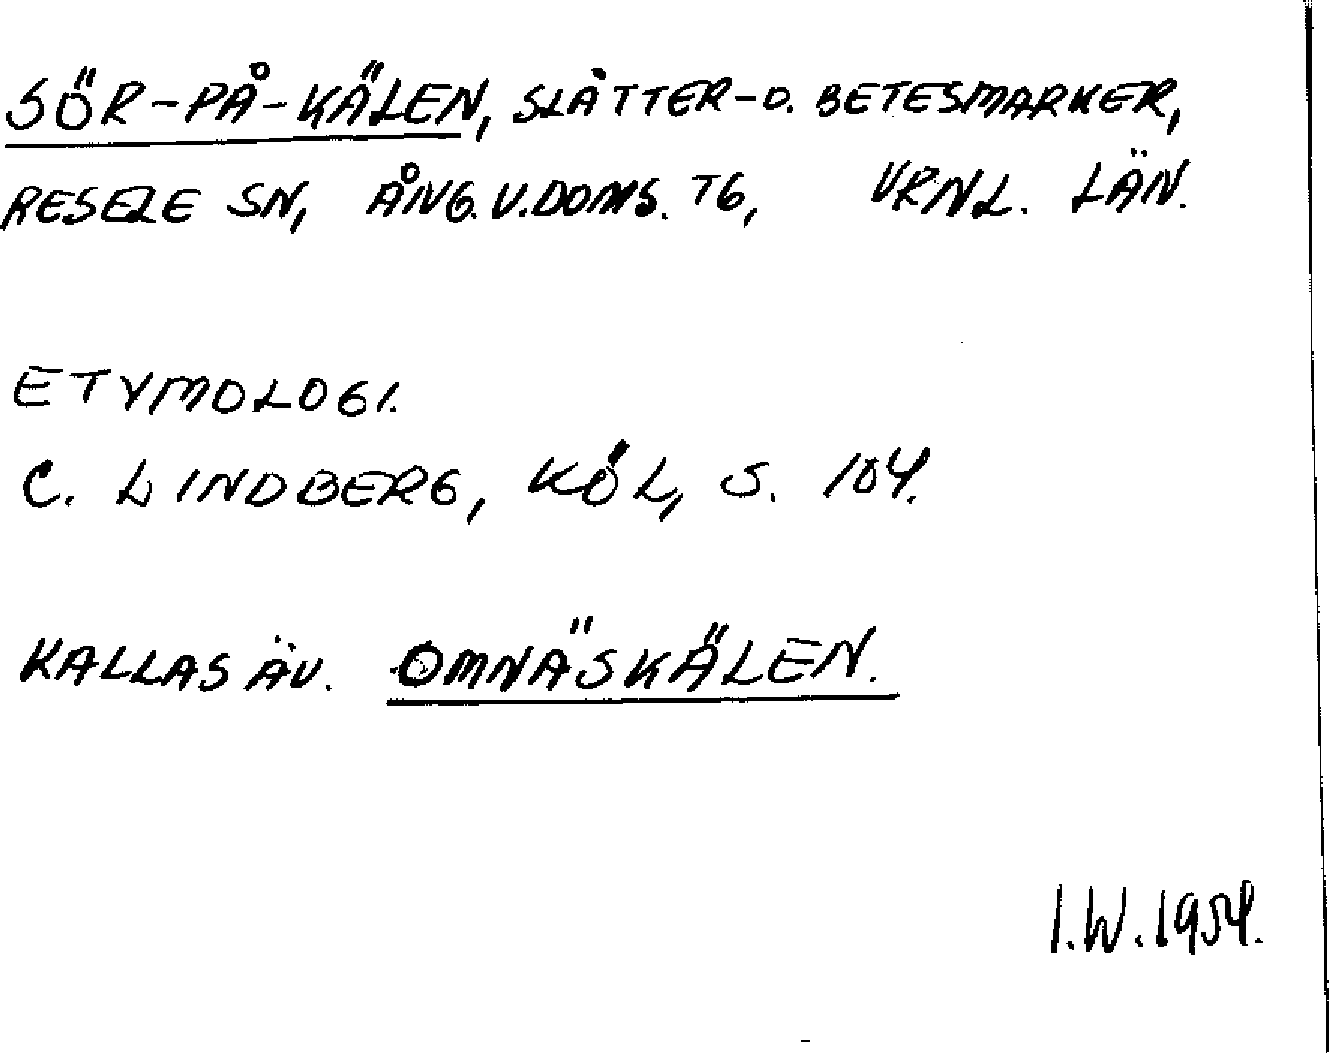 SÖR-PÅ-KÄLEN, SLÅTTER-O. BETESMARKER,
RESELE SN, ÅNG.V.DOMS. TG, VRNL. LÄN.
ETYMOLOGI.
C. LINDBERG, KÖL, S. 104.
KALLAS ÄV. OMNÄSKÄLEN.
I.W.1954.